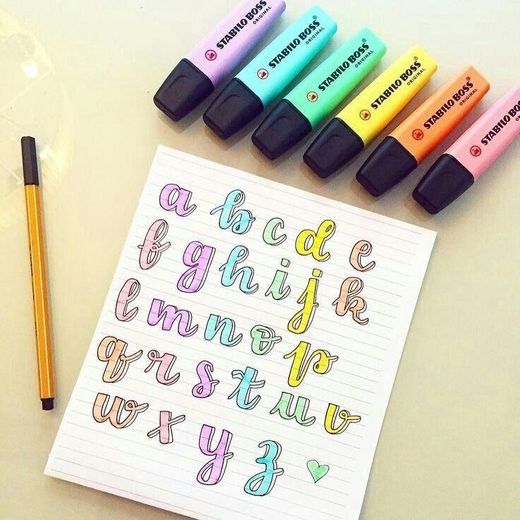 STABILO BOSS
ORIGINAL
STABILO BOSS
ORIGINAL
STABILO BOSS
ORIGINAL
STABILO BOSS
ORIGINAL
STABILO BOSS
ORIGINAL
STABILO BOSS
ORIGINAL
a b c d e
f g h i j k
l m n o p
q r s t u v
w x y z